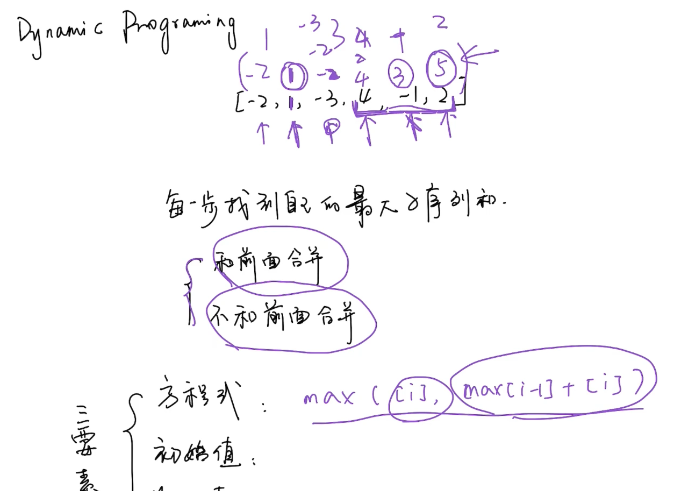 Dynamic Programing
1 -3 3 4 + 2
-2 2
(-2 1 -2 4 3 5)
[-2, 1, -3, 4, -1, 2]
每一步找到自己的最大子序列和.
和前面合并
不和前面合并
三要素
方程式: max ( [i], max[i-1] + [i] )
初始值: